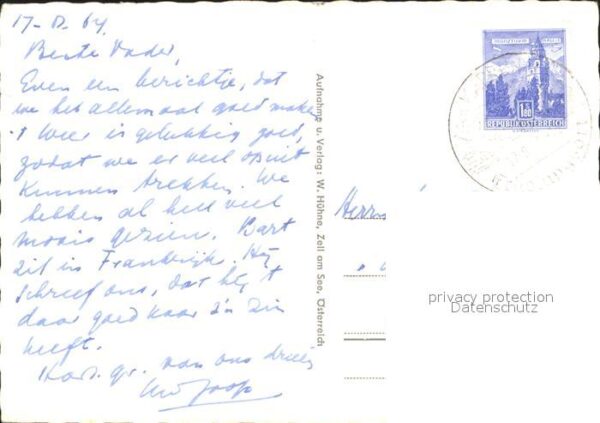 17-8.64
Beste Vader,
Even een berichtje, dat
we het allemaal goed maken
't Weer is gelukkig goed,
zodat we er veel opuit
kunnen trekken. We
hebben al heel veel
moois gezien. Bart
zit in Frankrijk. Hij
schreef ons, dat hij 't
daar goed naar z'n zin
heeft.
Hart. gr. van ons drieën
Joop
Aufnahme u. Verlag: W. Hühne, Zell am See, Österreich
1.80
REPUBLIK ÖSTERREICH
Herrn
privacy protection
Datenschutz